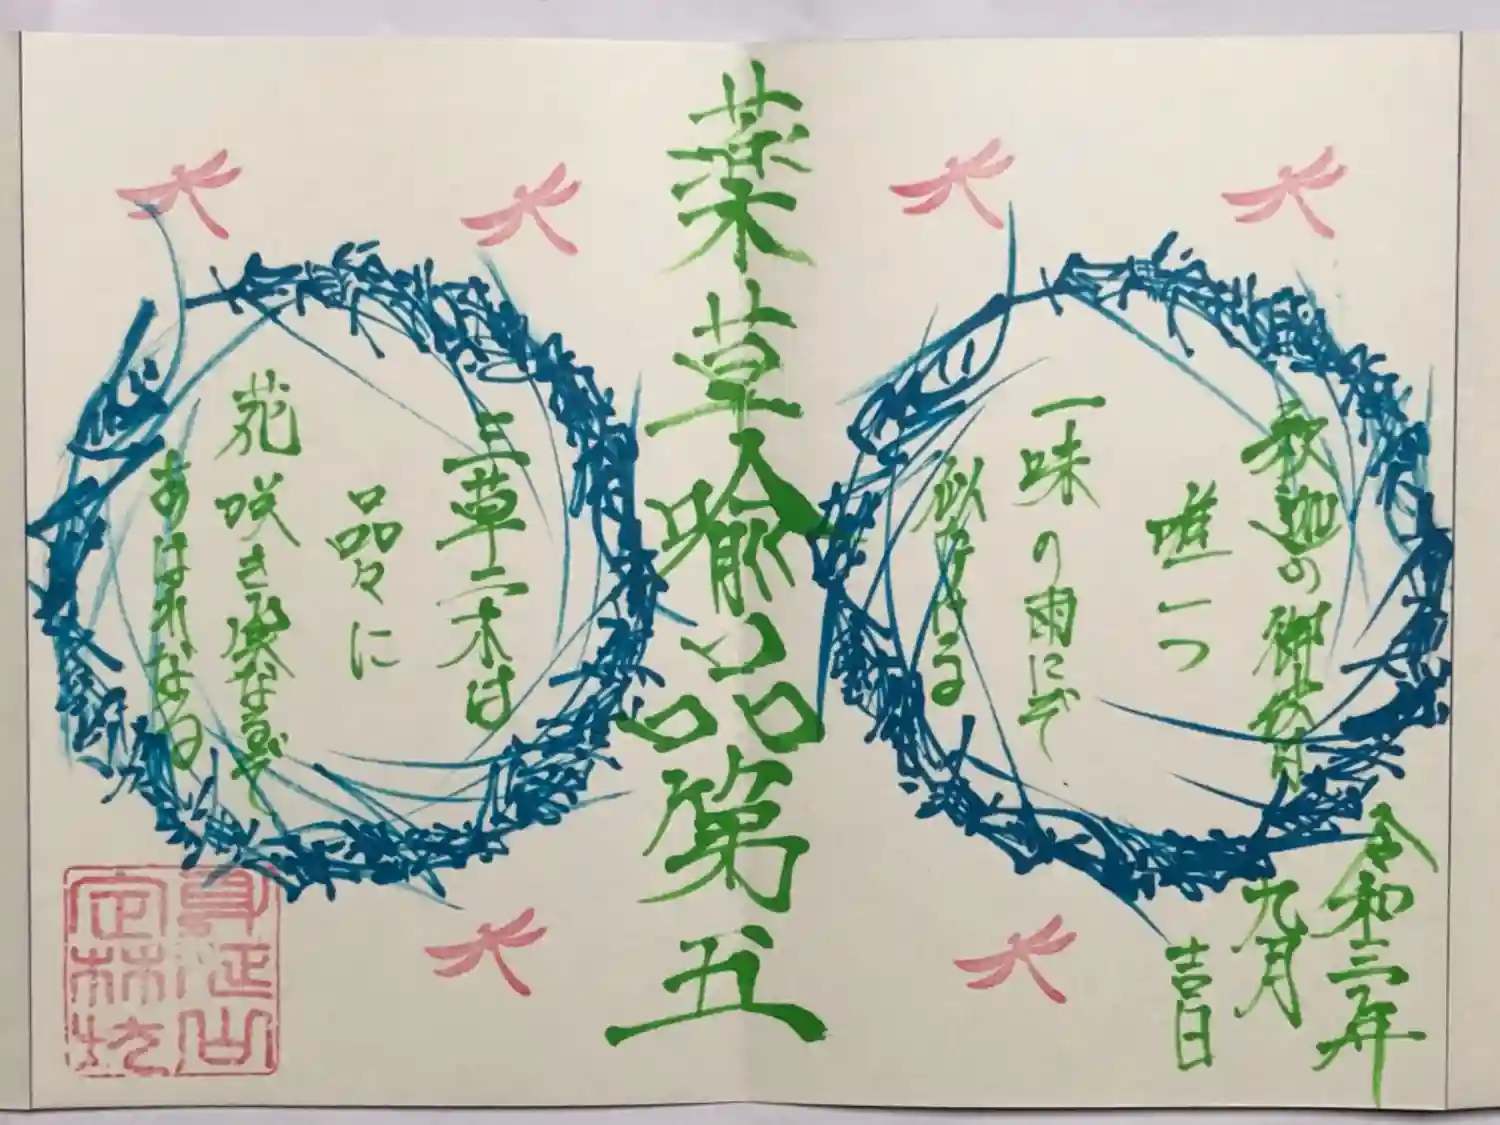 令和三年
九月
吉日
釈迦の御法は
唯一つ
一味の雨にぞ
似たりける
薬草喩品第五
三草二木は
品々に
花咲き実なるぞ
あはれなる
身延山
定林坊